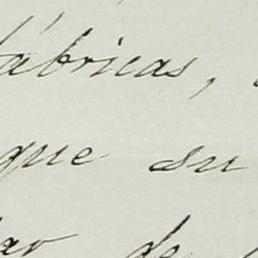 fábricas,
que su
ar de